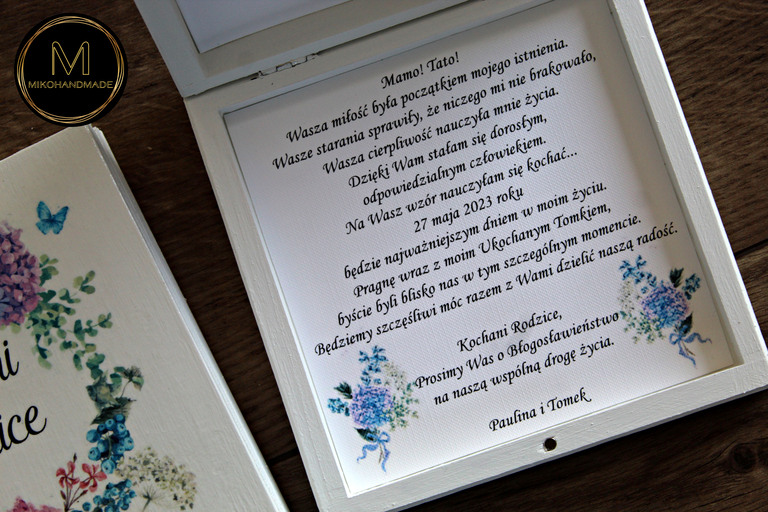 M
MIKOHANDMADE
Mamo! Tato!
Wasza miłość była początkiem mojego istnienia.
Wasze starania sprawiły, że niczego mi nie brakowało,
Wasza cierpliwość nauczyła mnie życia.
Dzięki Wam stałam się dorosłym,
odpowiedzialnym człowiekiem.
Na Wasz wzór nauczyłam się kochać...
27 maja 2023 roku
będzie najważniejszym dniem w moim życiu.
Pragnę wraz z moim Ukochanym Tomkiem,
byście byli blisko nas w tym szczególnym momencie.
Będziemy szczęśliwi móc razem z Wami dzielić naszą radość.
Kochani Rodzice,
Prosimy Was o Błogosławieństwo
na naszą wspólną drogę życia.
Paulina i Tomek